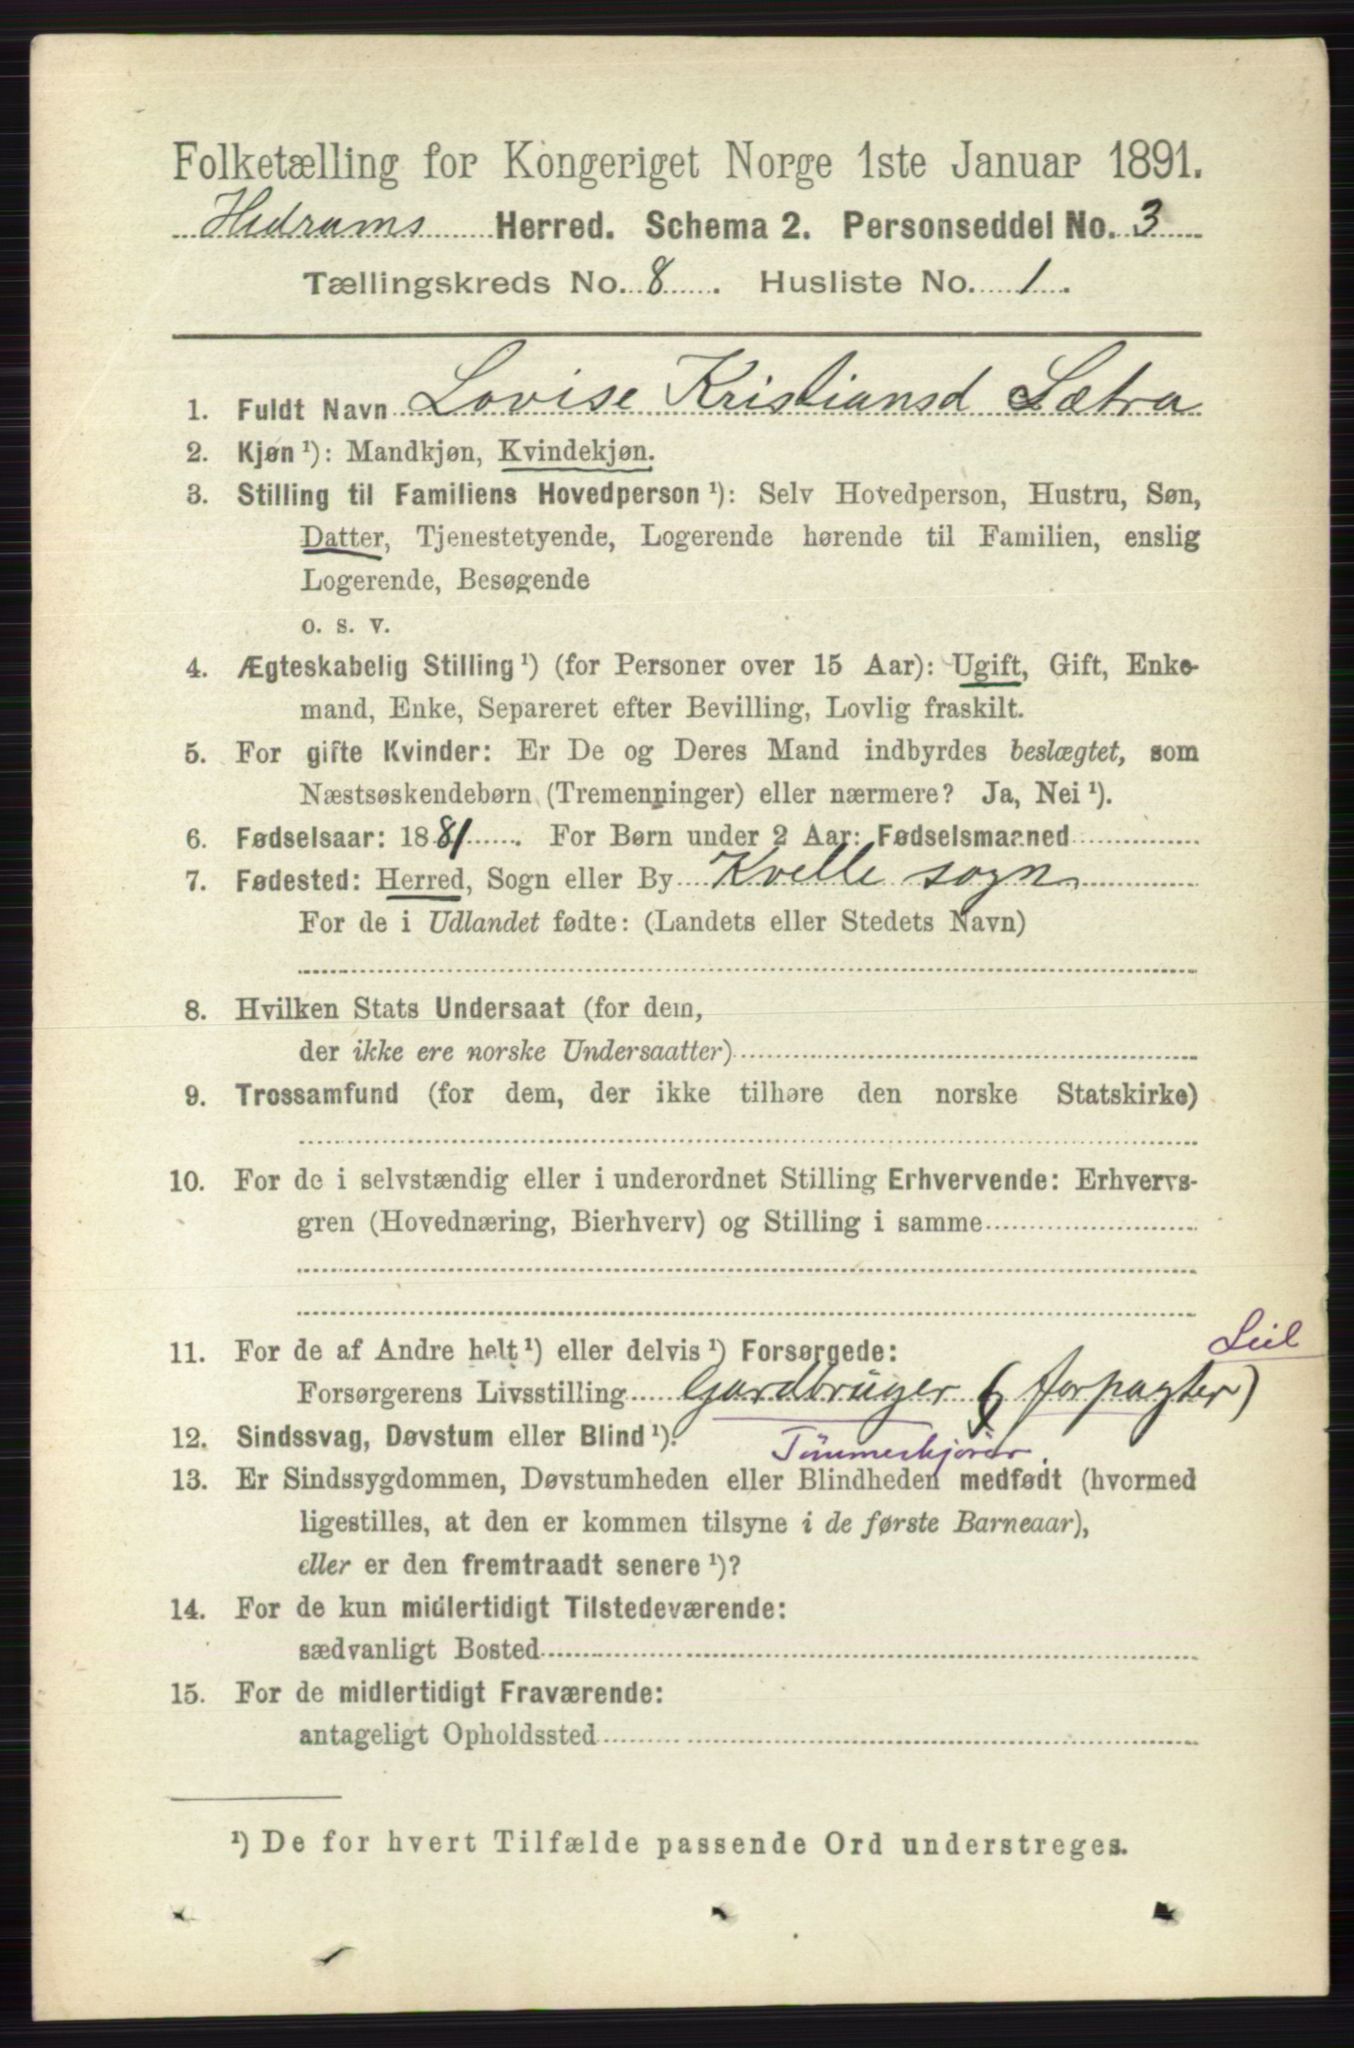 Folketælling for Kongeriget Norge 1ste Januar 1891.
Hedrums Herred. Schema 2. Personseddel No. 3
Tællingskreds No. 8. Husliste No. 1.
1. Fuldt Navn Lovise Kristiansd Sætra
2. Kjøn ¹): Mandkjøn, Kvindekjøn.
3. Stilling til Familiens Hovedperson ¹): Selv Hovedperson, Hustru, Søn,
Datter, Tjenestetyende, Logerende hørende til Familien, enslig
Logerende, Besøgende
o. s. v.
4. Ægteskabelig Stilling ¹) (for Personer over 15 Aar): Ugift, Gift, Enke-
mand, Enke, Separeret efter Bevilling, Lovlig fraskilt.
5. For gifte Kvinder: Er De og Deres Mand indbyrdes beslægtet, som
Næstsøskendebørn (Tremenninger) eller nærmere? Ja, Nei ¹).
6. Fødselsaar: 1881. For Børn under 2 Aar: Fødselsmaaned
7. Fødested: Herred, Sogn eller By Kvelle sogn
For de i Udlandet fødte: (Landets eller Stedets Navn)
8. Hvilken Stats Undersaat (for dem,
der ikke ere norske Undersaatter)
9. Trossamfund (for dem, der ikke tilhøre den norske Statskirke)
10. For de i selvstændig eller i underordnet Stilling Erhvervende: Erhvervs-
gren (Hovednæring, Bierhverv) og Stilling i samme
Leil
11. For de af Andre helt ¹) eller delvis ¹) Forsørgede:
Forsørgerens Livsstilling Gardbruger (forpagter)
12. Sindssvag, Døvstum eller Blind ¹).
Tømmerkjører.
13. Er Sindssygdommen, Døvstumheden eller Blindheden medfødt (hvormed
ligestilles, at den er kommen tilsyne i de første Barneaar),
eller er den fremtraadt senere ¹)?
14. For de kun midlertidigt Tilstedeværende:
sædvanligt Bosted
15. For de midlertidigt Fraværende:
antageligt Opholdssted
¹) De for hvert Tilfælde passende Ord understreges.